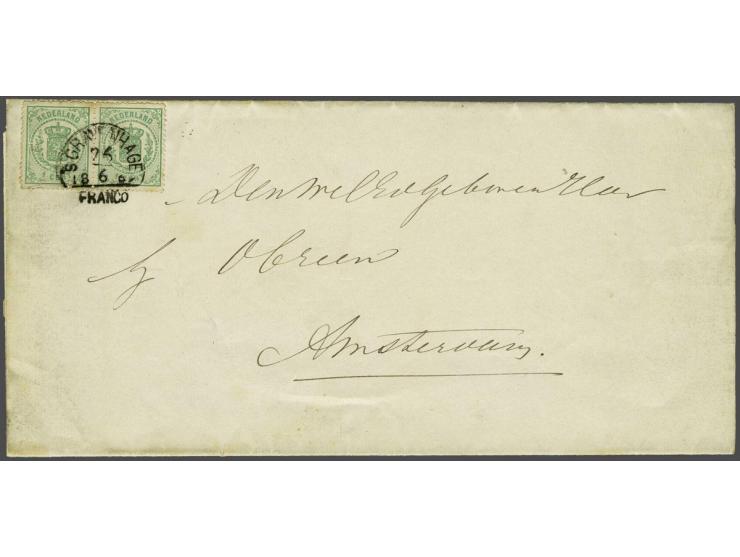 NEDERLAND NEDERLAND
'SGRAVENHAGE
18 6
FRANCO
Den WelEdGeboren Heer
O Breen
Amsterdam.